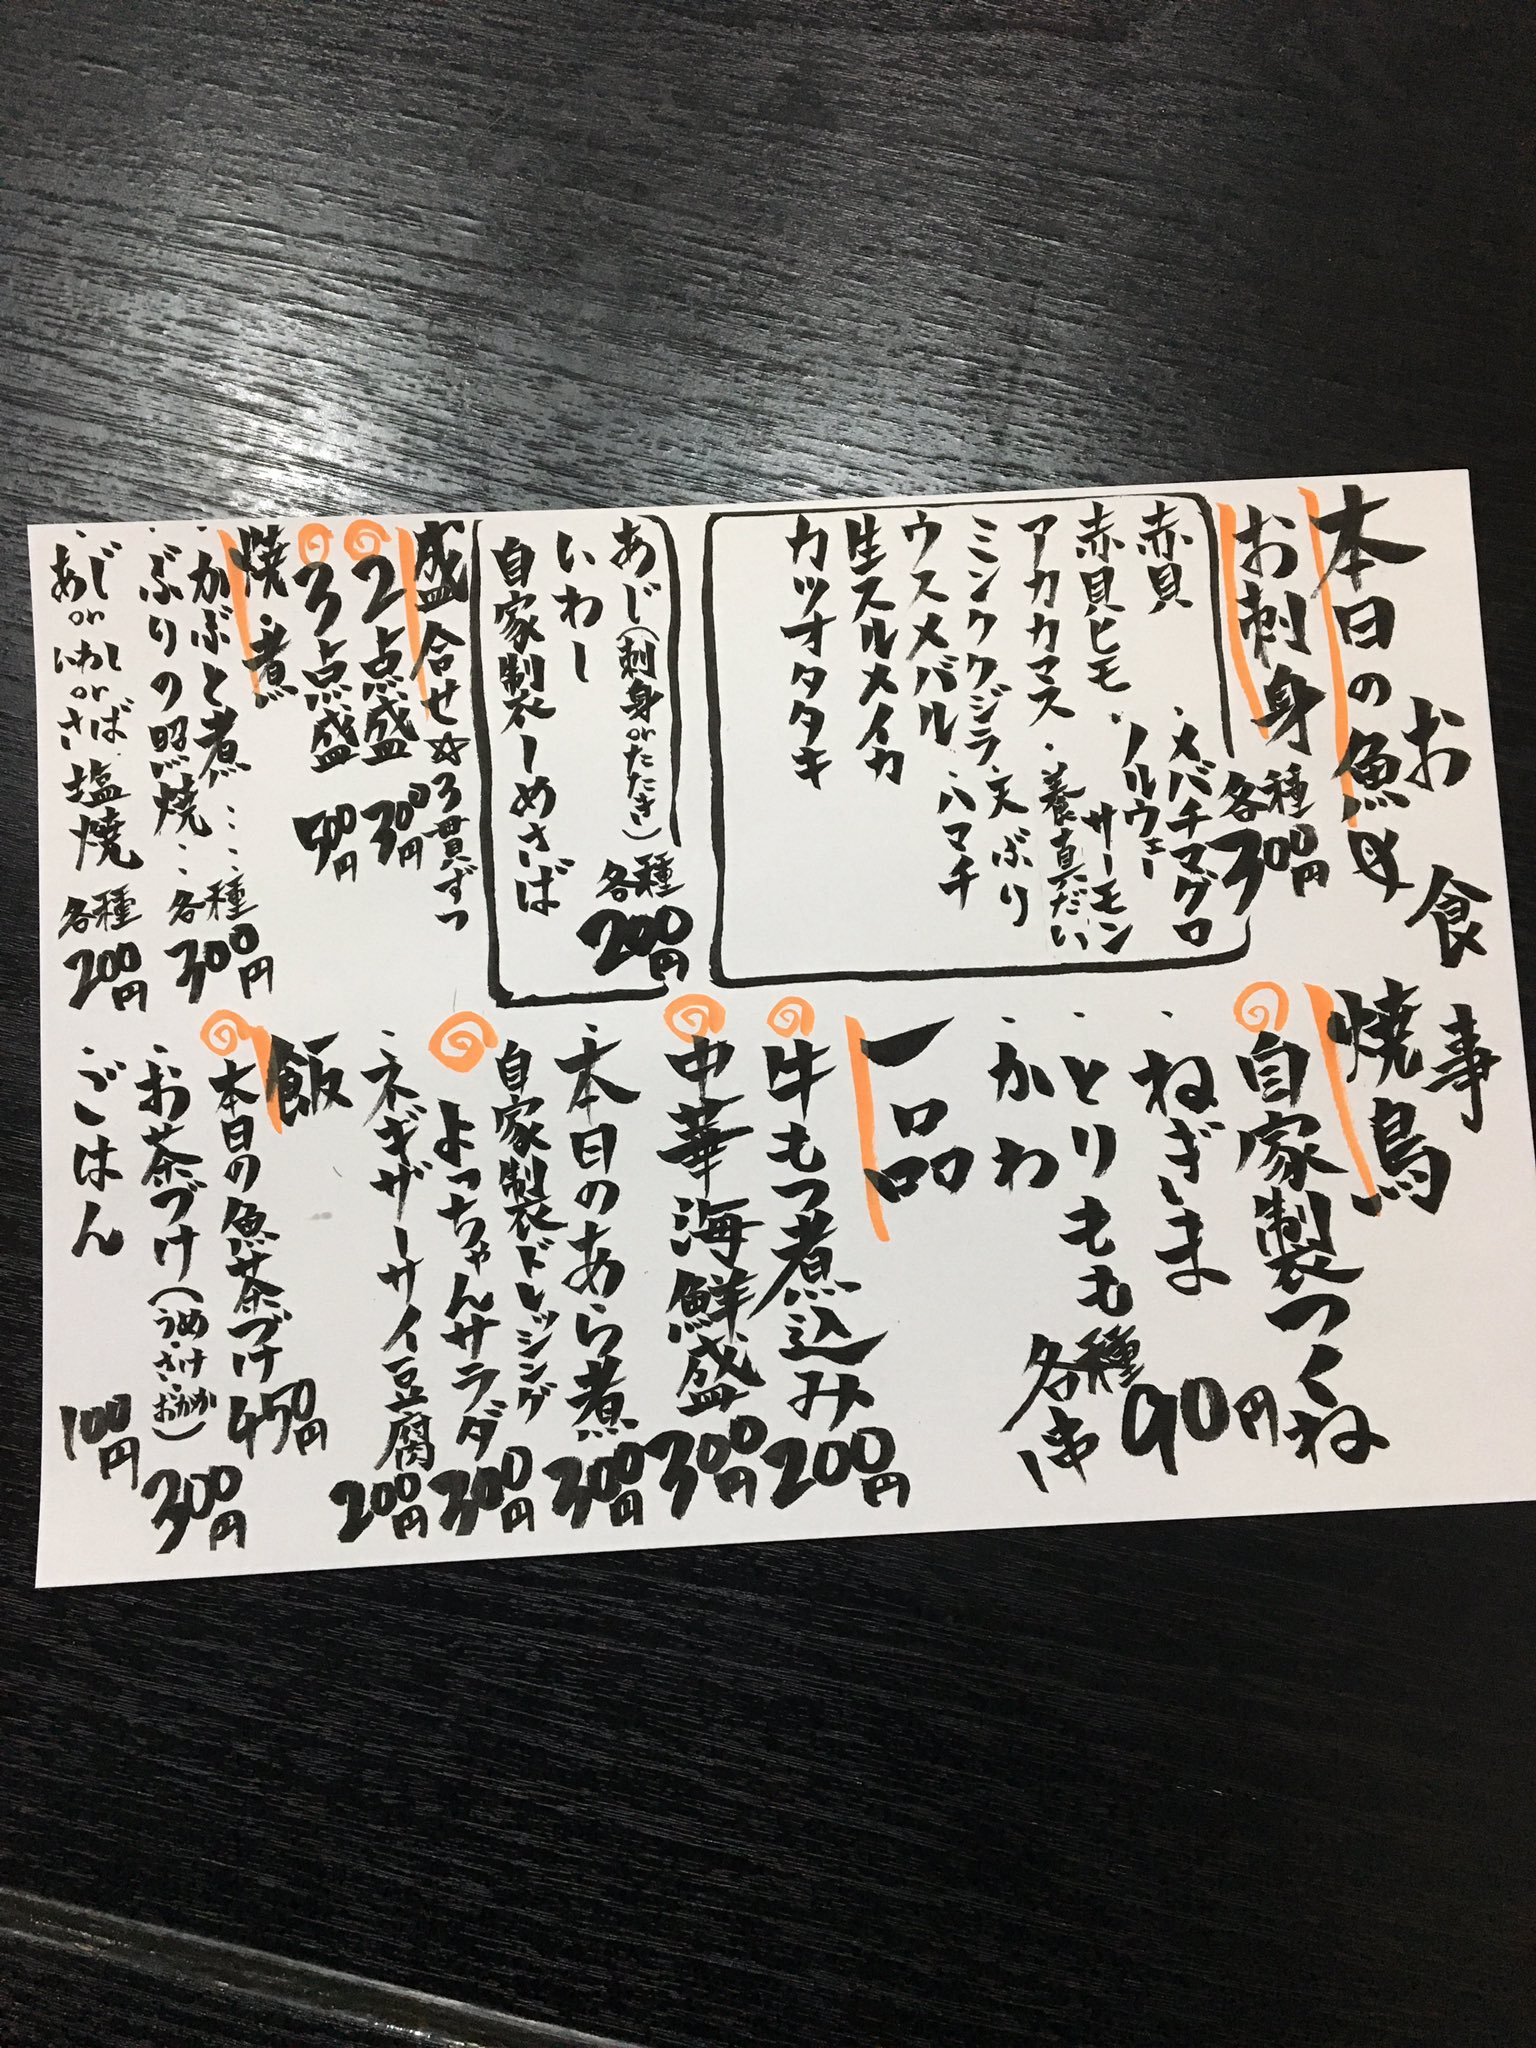 お食事
本日の魚
お刺身 各種300円
赤貝
赤貝ヒモ
アカカマス
ミンククジラ
ウスメバル
生スルメイカ
カツオタタキ
・メバチマグロ
・ノルウェーサーモン
・養真だい
・天ぶり
・ハマチ
あじ(刺身orたたき) 各種200円
いわし
自家製〆しめさば
盛合せ☆3貫ずつ
2点盛 300円
3点盛 500円
焼・煮
・かぶと煮……各種300円
・ぶりの照焼…
・あじorいわしorさば塩焼 各種200円
焼鳥
自家製つくね
・ねぎま 90円
・とりもも 各種1串
・かわ
一品
牛もつ煮込み 200円
中華海鮮盛 300円
・本日のあら煮 300円
自家製ドレッシング
よっちゃんサラダ 300円
・ネギザーサイ豆腐 200円
飯
本日の魚茶づけ 450円
・お茶づけ(うめ・さけ・おかか) 300円
・ごはん 100円